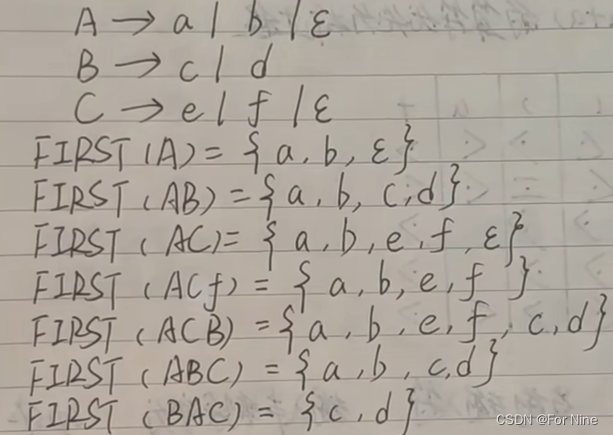 A → a | b | ε
B → c | d
C → e | f | ε
FIRST(A) = { a, b, ε}
FIRST(AB) = { a, b, c, d}
FIRST(AC) = { a, b, e, f, ε}
FIRST(ACf) = { a, b, e, f }
FIRST(ACB) = { a, b, e, f, c, d}
FIRST(ABC) = { a, b, c, d}
FIRST(BAC) = { c, d}
CSDN @For Nine